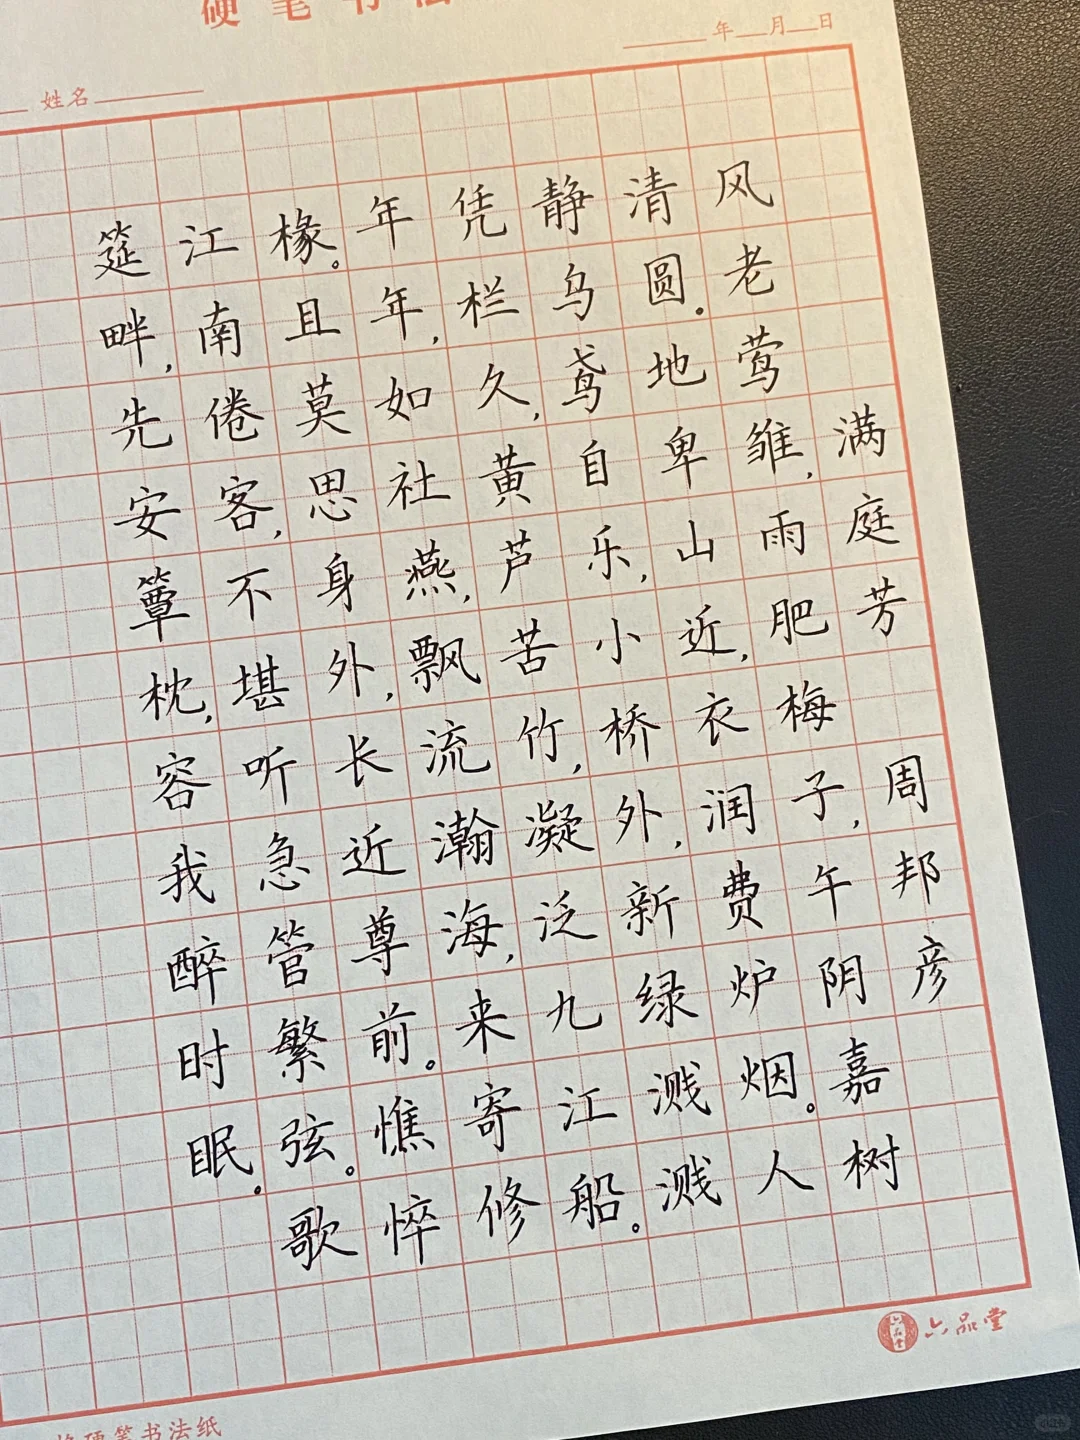 硬笔书法
姓名
年 月 日
满庭芳 周邦彦
风老莺雏,雨肥梅子,午阴嘉树
清圆。地卑山近,衣润费炉烟。人
静乌鸢自乐,小桥外,新绿溅溅
凭栏久,黄芦苦竹,凝泛九江船。
年年,如社燕,飘流瀚海,来寄修
椽。且莫思身外,长近尊前。憔悴
江南倦客,不堪听急管繁弦。歌
筵畔,先安簟枕,容我醉时眠。
六品堂
硬笔书法纸